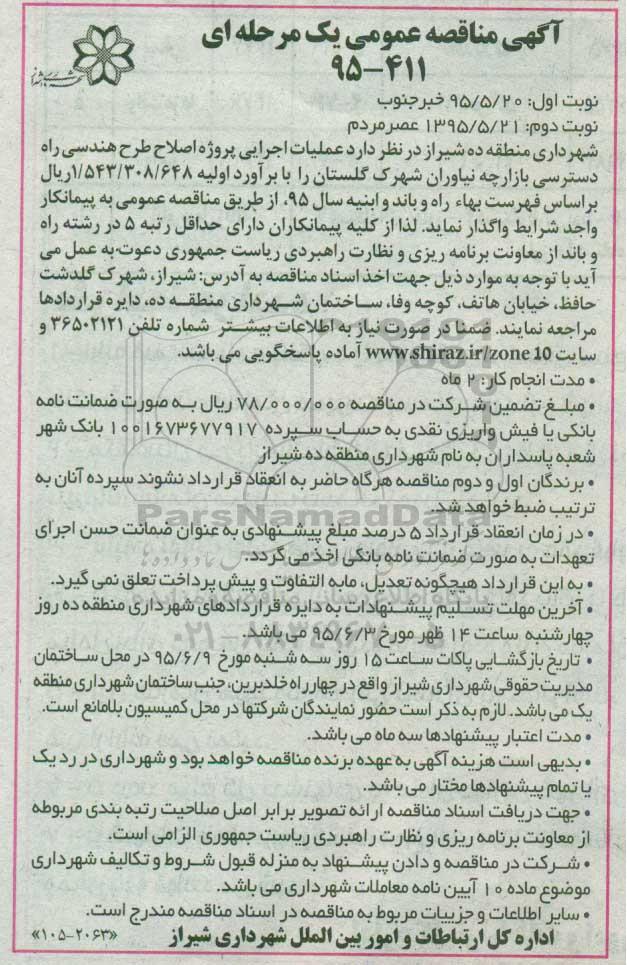 آگهی مناقصه عمومی یک مرحله ای
۹۵-۴۱۱
نوبت اول: ۹۵/۵/۲۰ خبرجنوب
نوبت دوم: ۱۳۹۵/۵/۲۱ عصرمردم
شهرداری منطقه ده شیراز در نظر دارد عملیات اجرایی پروژه اصلاح طرح هندسی راه
دسترسی بازارچه نیاوران شهرک گلستان را با برآورد اولیه ۱/۵۴۳/۳۰۸/۶۴۸ریال
براساس فهرست بهاء راه و باند و ابنیه سال ۹۵، از طریق مناقصه عمومی به پیمانکار
واجد شرایط واگذار نماید. لذا از کلیه پیمانکاران دارای حداقل رتبه ۵ در رشته راه
و باند از معاونت برنامه ریزی و نظارت راهبردی ریاست جمهوری دعوت به عمل می
آید با توجه به موارد ذیل جهت اخذ اسناد مناقصه به آدرس: شیراز، شهرک گلدشت
حافظ، خیابان هاتف، کوچه وفا، ساختمان شهرداری منطقه ده، دایره قراردادها
مراجعه نمایند. ضمنا در صورت نیاز به اطلاعات بیشتر شماره تلفن ۳۶۵۰۲۱۲۱ و
سایت www.shiraz.ir/zone 10 آماده پاسخگویی می باشد.
• مدت انجام کار: ۲ ماه
• مبلغ تضمین شرکت در مناقصه ۷۸/۰۰۰/۰۰۰ ریال به صورت ضمانت نامه
بانکی یا فیش واریزی نقدی به حساب سپرده ۱۰۰۱۶۷۳۶۷۷۹۱۷ بانک شهر
شعبه پاسداران به نام شهرداری منطقه ده شیراز
• برندگان اول و دوم مناقصه هرگاه حاضر به انعقاد قرارداد نشوند سپرده آنان به
ترتیب ضبط خواهد شد.
• در زمان انعقاد قرارداد ۵ درصد مبلغ پیشنهادی به عنوان ضمانت حسن اجرای
تعهدات به صورت ضمانت نامه بانکی اخذ می گردد.
• به این قرارداد هیچگونه تعدیل، مابه التفاوت و پیش پرداخت تعلق نمی گیرد.
• آخرین مهلت تسلیم پیشنهادات به دایره قراردادهای شهرداری منطقه ده روز
چهارشنبه ساعت ۱۴ ظهر مورخ ۹۵/۶/۳ می باشد.
• تاریخ بازگشایی پاکات ساعت ۱۵ روز سه شنبه مورخ ۹۵/۶/۹ در محل ساختمان
مدیریت حقوقی شهرداری شیراز واقع در چهارراه خلدبرین، جنب ساختمان شهرداری منطقه
یک می باشد. لازم به ذکر است حضور نمایندگان شرکتها در محل کمیسیون بلامانع است.
• مدت اعتبار پیشنهادها سه ماه می باشد.
• بدیهی است هزینه آگهی به عهده برنده مناقصه خواهد بود و شهرداری در رد یک
یا تمام پیشنهادها مختار می باشد.
• جهت دریافت اسناد مناقصه ارائه تصویر برابر اصل صلاحیت رتبه بندی مربوطه
از معاونت برنامه ریزی و نظارت راهبردی ریاست جمهوری الزامی است.
• شرکت در مناقصه و دادن پیشنهاد به منزله قبول شروط و تکالیف شهرداری
موضوع ماده ۱۰ آیین نامه معاملات شهرداری می باشد.
• سایر اطلاعات و جزییات مربوط به مناقصه در اسناد مناقصه مندرج است.
اداره کل ارتباطات و امور بین الملل شهرداری شیراز «۱۰۵-۲۰۶۳»
ParsNamadData